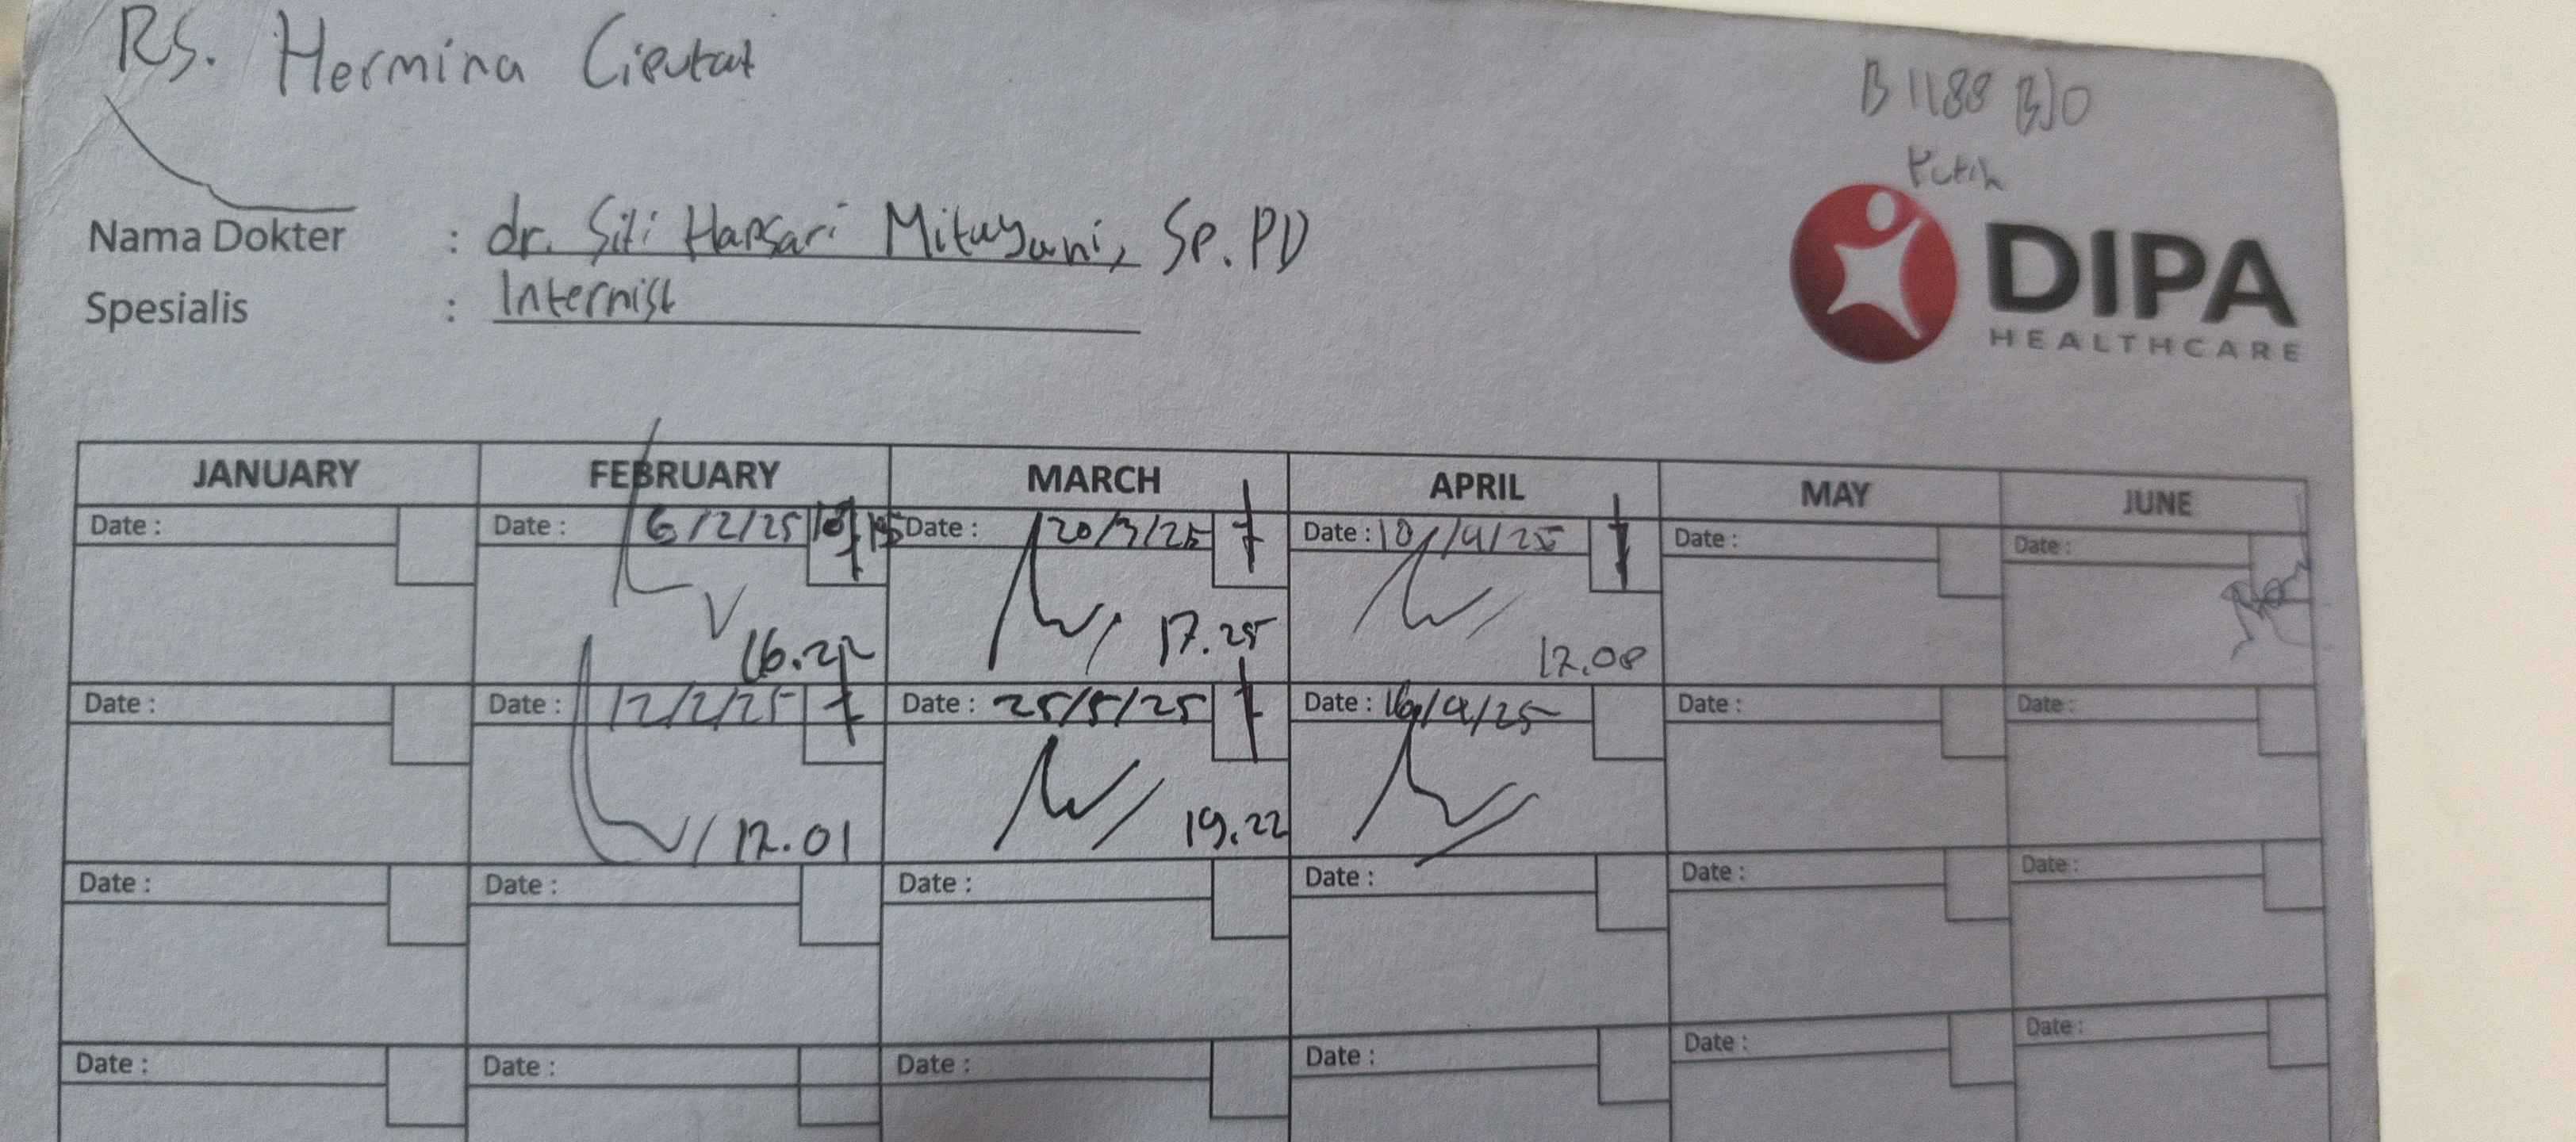 RS. Hermina Ciputat
B 1188 BJO
Putih
Nama Dokter : dr. Siti Hapsari Mitayani, Sp.PD
Spesialis : Internist
DIPA
HEALTHCARE
JANUARY FEBRUARY MARCH APRIL MAY JUNE
Date : Date : 6/2/25 Date : 20/3/25 Date : 10/4/25 Date : Date :
16.22 17.25 12.08
Date : Date : 12/2/25 Date : 25/5/25 Date : 16/4/25 Date : Date :
12.01 19.22
Date : Date : Date : Date : Date : Date :
Date : Date : Date : Date : Date : Date :